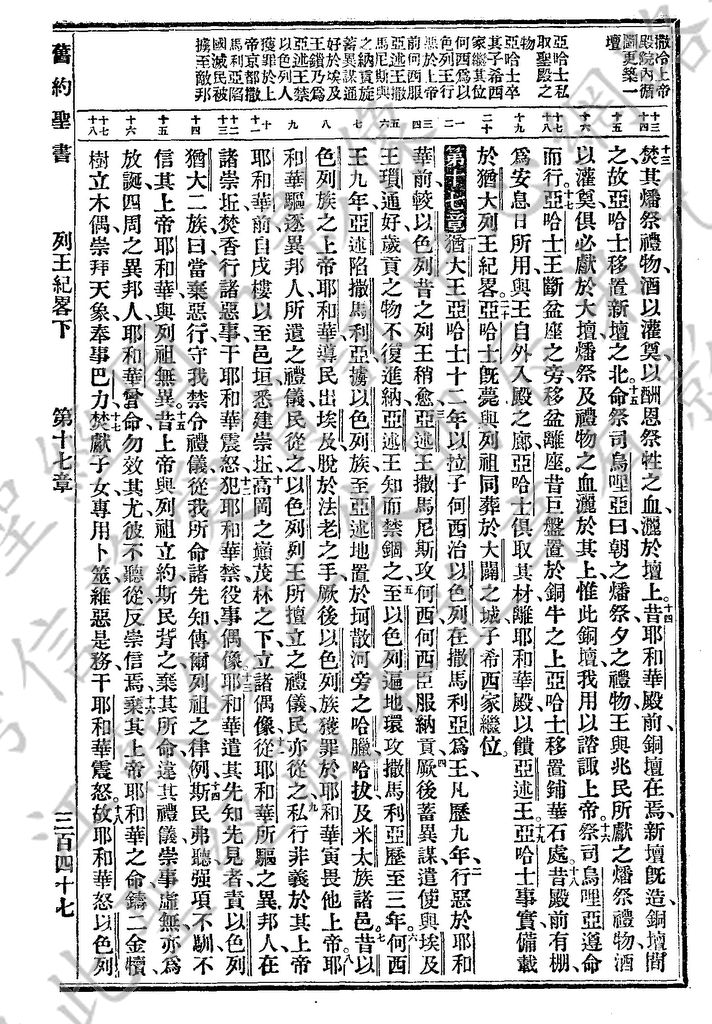 撒冷上帝
殿院內循
圖更築一
壇
亞哈士私
取聖殿之
物
亞哈士卒
其子希西
家繼其位
何西為以
色列王行
惡於上帝
前何西服
亞述王撒
馬尼斯與
之納貢旋
蓄異謀通
好於埃及
王鎖乃為
亞述王禁
以色列人
獲罪於上
帝京都撒
馬利亞陷
國滅民被
擄至敵邦
焚其燔祭禮物酒以灌奠以酬恩祭牲之血灑於壇上昔耶和華殿前銅壇在焉新壇旣造銅壇間
之故亞哈士移置新壇之北命祭司烏哩亞曰朝之燔祭夕之禮物王與兆民所獻之燔祭禮物酒
以灌奠俱必獻於大壇燔祭及禮物之血灑於其上惟此銅壇我用以諮諏上帝祭司烏哩亞遵命
而行亞哈士王斷盆座之旁移盆離座昔巨盤置於銅牛之上亞哈士移置鋪華石處昔殿前有棚
為安息日所用與王自外入殿之廊亞哈士俱取其材離耶和華殿以饋亞述王亞哈士事實備載
於猶大列王紀畧亞哈士旣薨與列祖同葬於大闢之城子希西家繼位
第十七章猶大王亞哈士十二年以拉子何西治以色列在撒馬利亞為王凡歷九年行惡於耶和
華前較以色列昔之列王稍愈亞述王撒馬尼斯攻何西何西臣服納貢厥後蓄異謀遣使與埃及
王瑣通好歲貢之物不復進納亞述王知而禁錮之至以色列遍地環攻撒馬利亞歷至三年何西
王九年亞述陷撒馬利亞擄以色列族至亞述地置於坷散河旁之哈臘哈拔及米太族諸邑昔以
色列族之上帝耶和華導民出埃及脫於法老之手厥後以色列族獲罪於耶和華寅畏他上帝耶
和華驅逐異邦人所遣之禮儀民從之以色列列王所擅立之禮儀民亦從之私行非義於其上帝
耶和華前自戍樓以至邑垣悉建崇坵高岡之巔茂林之下立諸偶像從耶和華所驅之異邦人在
諸崇坵焚香行諸惡事干耶和華震怒犯耶和華禁役事偶像耶和華遣其先知先見者責以色列
猶大二族曰當棄惡行守我禁令禮儀從我所命諸先知傳爾列祖之律例斯民弗聽強項不馴不
信其上帝耶和華與列祖無異昔上帝與列祖立約斯民背之棄其所命違其禮儀崇事虛無亦為
放誕四周之異邦人耶和華曾命勿效其尤彼不聽從反崇信焉棄其上帝耶和華之命鑄二金犢
樹立木偶崇拜天象奉事巴力焚獻子女專用卜筮維惡是務干耶和華震怒故耶和華怒以色列
舊約聖書 列王紀畧下 第十七章 三百四十七